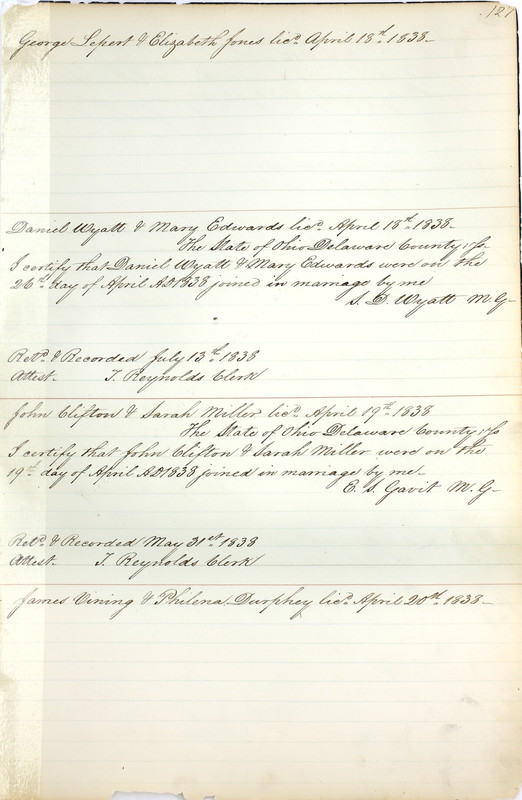 121
George Lepert & Elizabeth Jones licd. April 18th. 1838
Daniel Wyatt & Mary Edwards licd. April 18th. 1838
The State of Ohio Delaware County, ss
I certify that Daniel Wyatt & Mary Edwards were on the
26th. day of April AD 1838 joined in marriage by me
S. D. Wyatt M. G
Retd. & Recorded July 13th. 1838
Attest. T. Reynolds Clerk
John Clifton & Sarah Miller licd. April 19th. 1838
The State of Ohio Delaware County, ss
I certify that John Clifton & Sarah Miller were on the
19th. day of April AD 1838 joined in marriage by me
E. S. Gavit M. G
Retd. & Recorded May 31st 1838
Attest. T. Reynolds Clerk
James Vining & Philena Durphey licd. April 20th. 1838